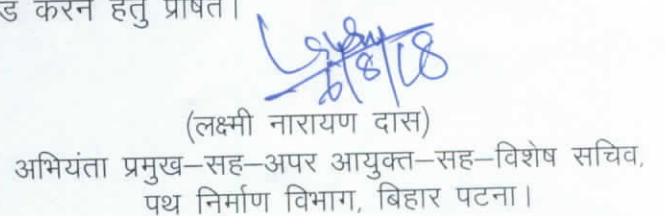 करने हेतु प्रेषित।
6/8/18
(लक्ष्मी नारायण दास)
अभियंता प्रमुख–सह–अपर आयुक्त–सह–विशेष सचिव,
पथ निर्माण विभाग, बिहार पटना।